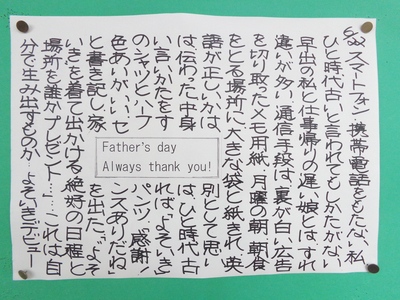 スマートフォン・携帯電話をもたない私
ひと時代古いと言われてもしかたがない
早出の私と仕事帰りの遅い娘とは、すれ
違いが多い。通信手段は、裏が白い広告
を切り取ったメモ用紙。月曜の朝、朝食
をとる場所に大きな袋と紙きれ。英
語が正しいかは、別として思い
は伝わった。中身は、ひと時代古
い言いかたをすれば、“よそいき”
のシャツとハーフパンツ。「感謝!
色あいがいい、センスありだね」
と書き記し、家を出た。“よそ
いき”を着て出かける絶好の日程と
場所を誰かプレゼント…。これは自
分で生み出すものか…よそいきデビュー
Father's day
Always thank you!